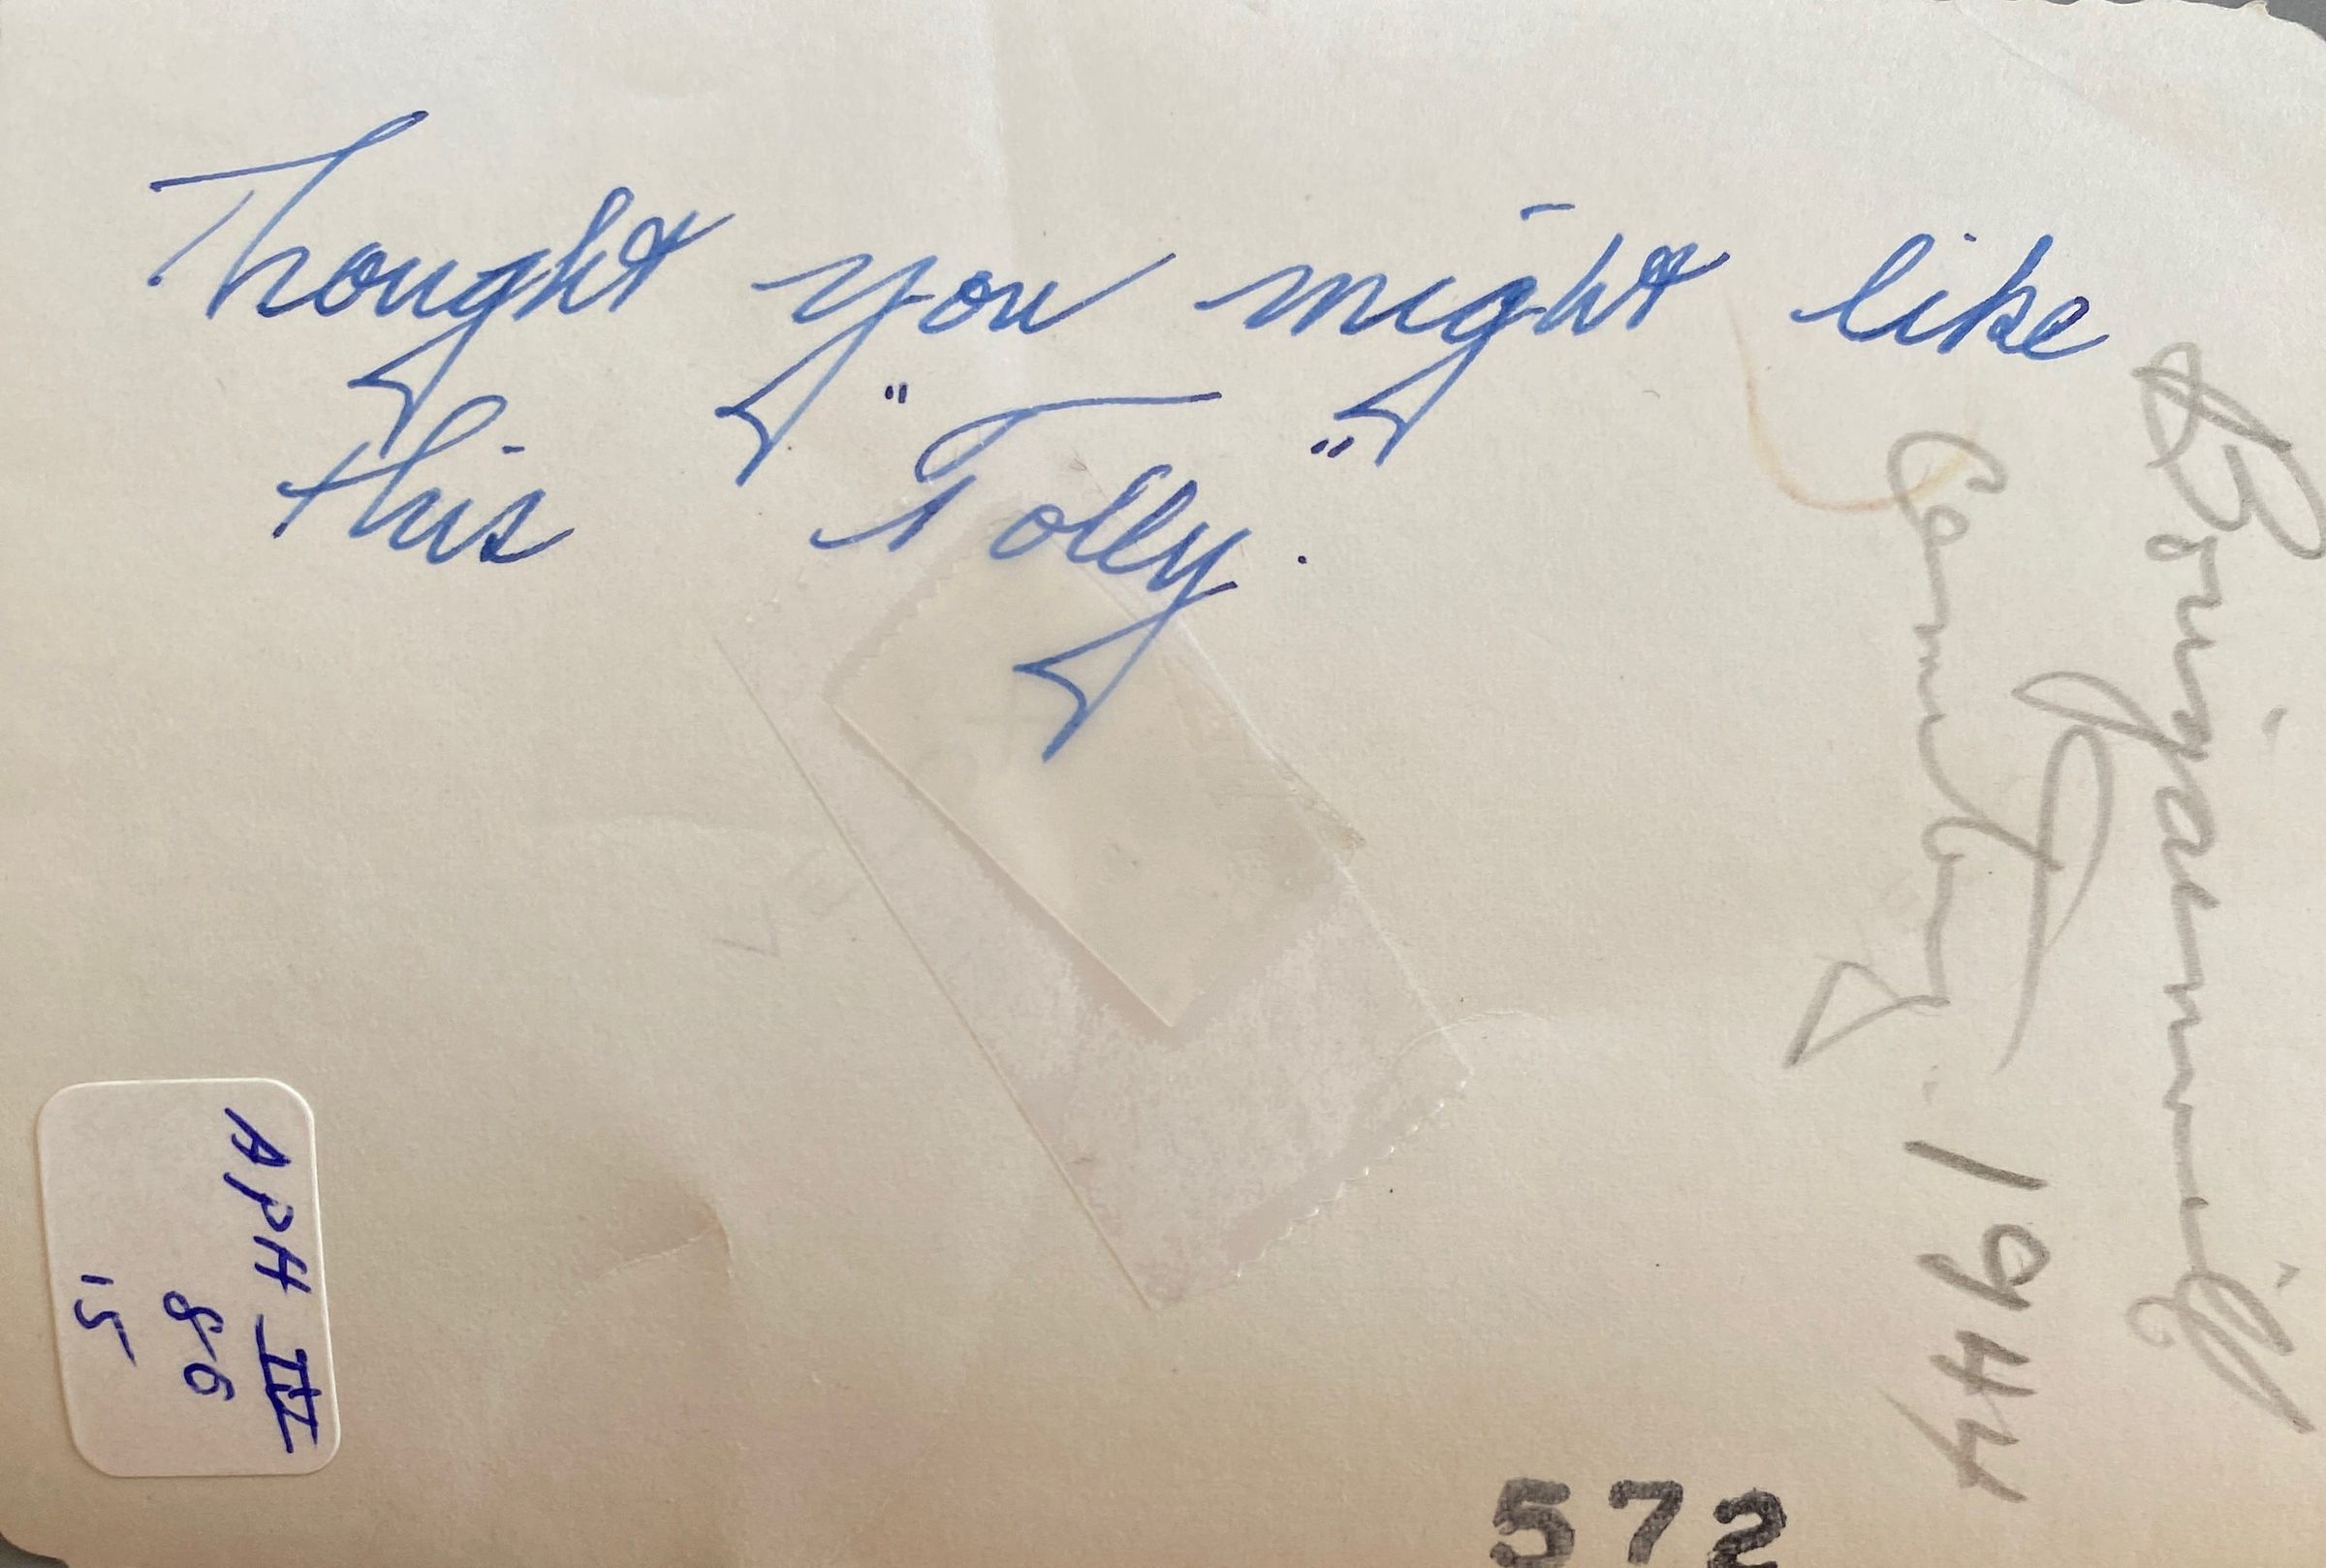 Thought you might like
this "Tolly".
VELOX
Cemetery. 1944
APH III
86
15
572